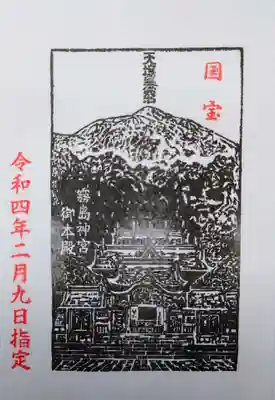 国宝
天孫降臨
霧島神宮
御本殿
令和四年二月九日指定